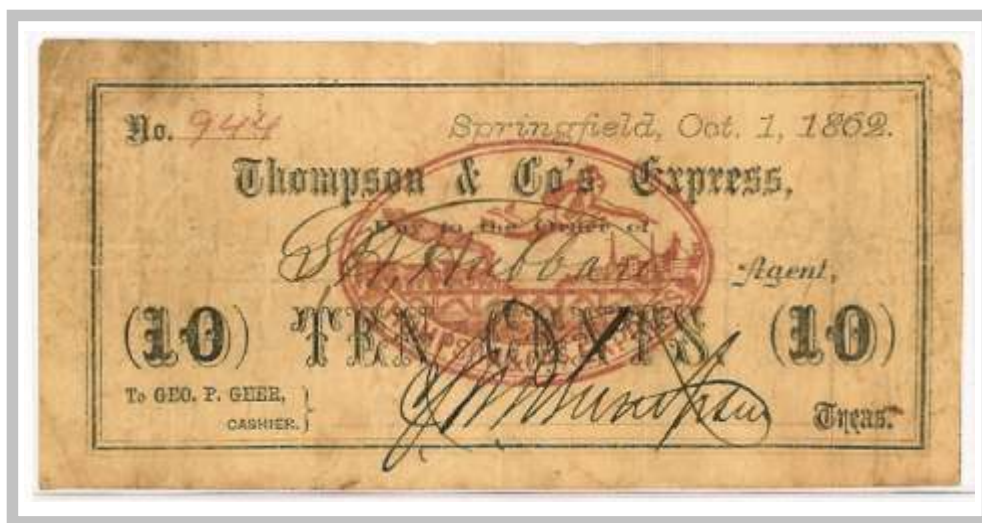 No. 944 Springfield, Oct. 1, 1862.
Thompson & Co's Express,
Pay to the Order of
Hubbard Agent,
(10) TEN CENTS. (10)
To GEO. P. GEER,
CASHIER.
Treas.